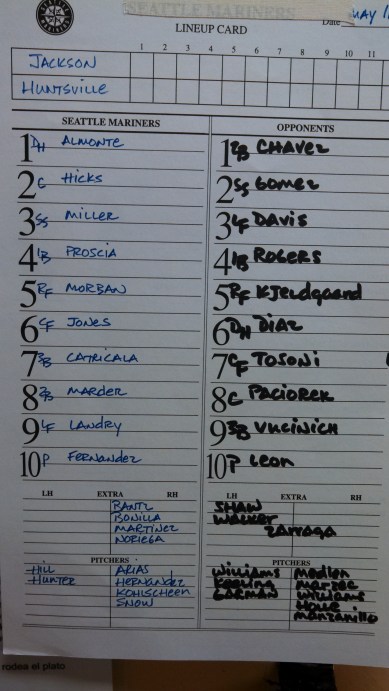 SEATTLE MARINERS
LINEUP CARD
Date MAY 1
1 2 3 4 5 6 7 8 9 10 11
JACKSON
HUNTSVILLE
SEATTLE MARINERS
1 DH ALMONTE
2 C HICKS
3 SS MILLER
4 1B PROSCIA
5 RF MORBAN
6 CF JONES
7 3B CATRICALA
8 2B MARDER
9 LF LANDRY
10 P FERNANDEZ
LH EXTRA RH
BANTZ
BONILLA
MARTINEZ
NORIEGA
PITCHERS
HILL ARIAS
HUNTER HERNANDEZ
KOHLSCHEEN
SNOW
OPPONENTS
1 2B CHAVEZ
2 SS GOMEZ
3 LF DAVIS
4 1B ROGERS
5 RF KJELDGAARD
6 DH DIAZ
7 CF TOSONI
8 C PACIOREK
9 3B VUCINICH
10 P LEON
LH EXTRA RH
SHAW
WALKER
ZARRAGA
PITCHERS
WILLIAMS MEDLEN
KEELING MARZEC
GARMAN WILLIAMS
HOUE
MANZANILLO
rodea el plato